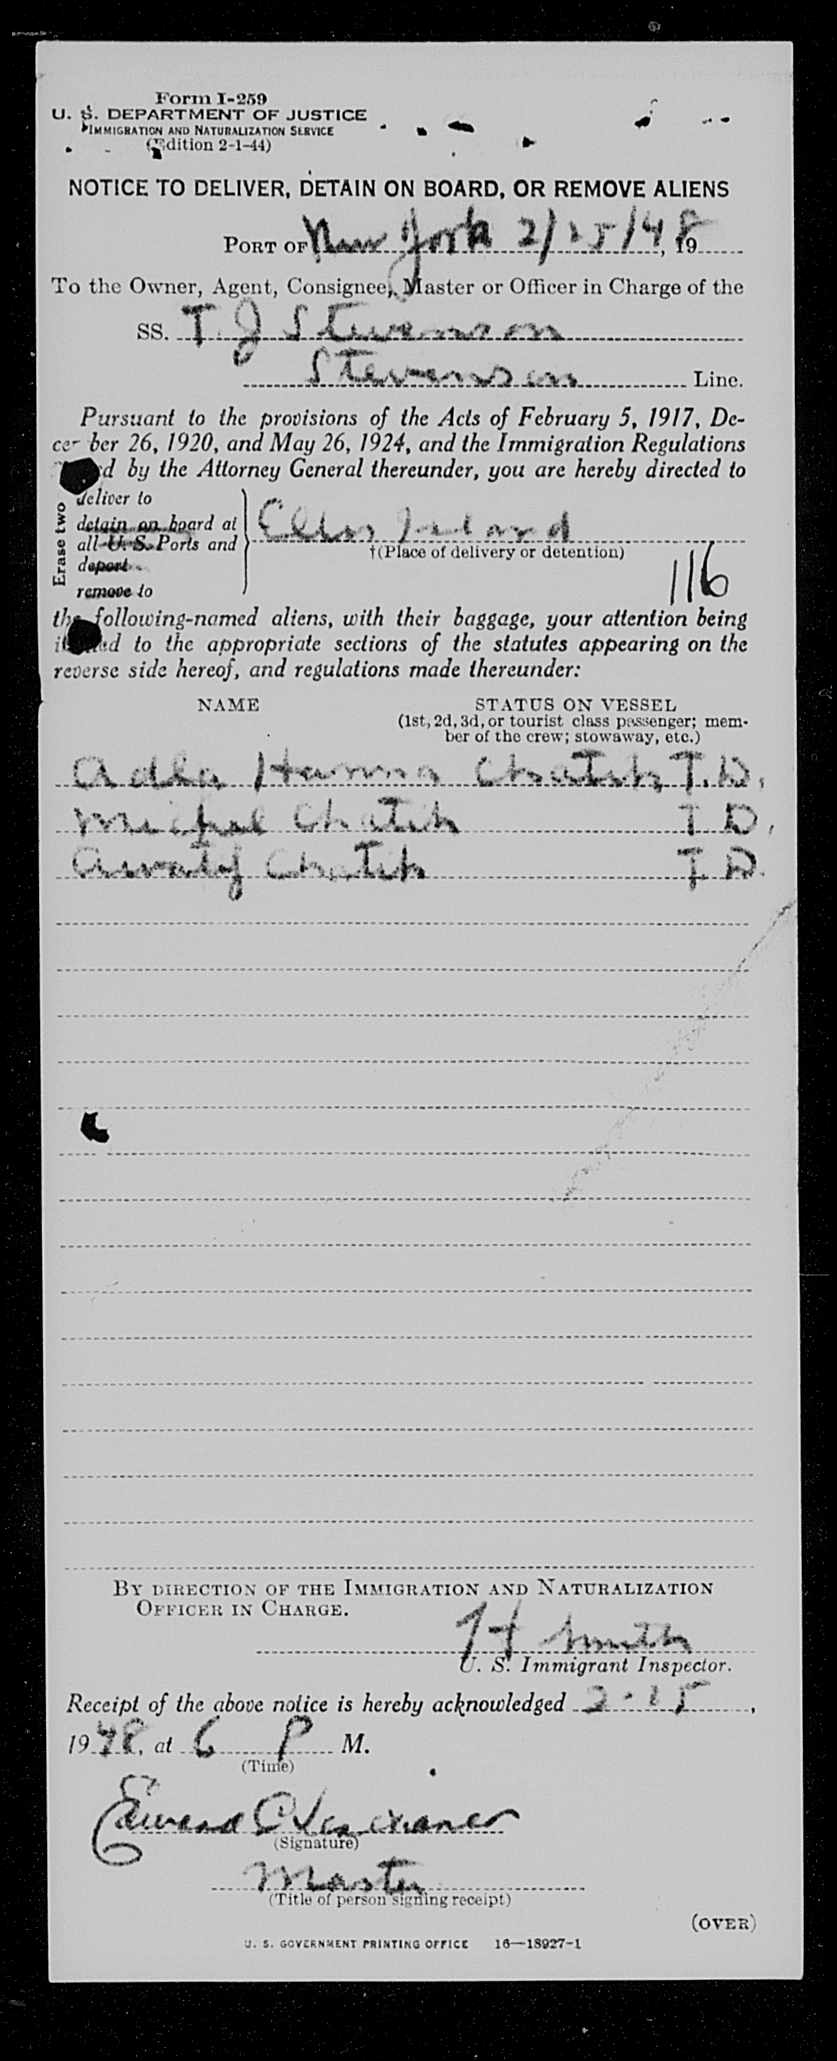 Form I-259
U. S. DEPARTMENT OF JUSTICE
IMMIGRATION AND NATURALIZATION SERVICE
(Edition 2-1-44)
NOTICE TO DELIVER, DETAIN ON BOARD, OR REMOVE ALIENS
PORT OF New York 2/15/48, 19
To the Owner, Agent, Consignee, Master or Officer in Charge of the
SS. T. J Stevenson
Stevenson Line.
Pursuant to the provisions of the Acts of February 5, 1917, De-
cember 26, 1920, and May 26, 1924, and the Immigration Regulations
by the Attorney General thereunder, you are hereby directed to
Erase two
deliver to
detain on board at
all U. S. Ports and
deport
remove to
Ellis Island
†(Place of delivery or detention)
116
the following-named aliens, with their baggage, your attention being
to the appropriate sections of the statutes appearing on the
reverse side hereof, and regulations made thereunder:
NAME STATUS ON VESSEL
(1st, 2d, 3d, or tourist class passenger; mem-
ber of the crew; stowaway, etc.)
Adla Hanna Chatih, T. D.,
Michel Chatih T. D.,
Awatif Chatih T. D.
BY DIRECTION OF THE IMMIGRATION AND NATURALIZATION
OFFICER IN CHARGE.
Smith
U. S. Immigrant Inspector.
Receipt of the above notice is hereby acknowledged 2-15,
1948, at 6 P M.
(Time)
Edward C
(Signature)
Master
(Title of person signing receipt)
(OVER)
U. S. GOVERNMENT PRINTING OFFICE 16—18927-1